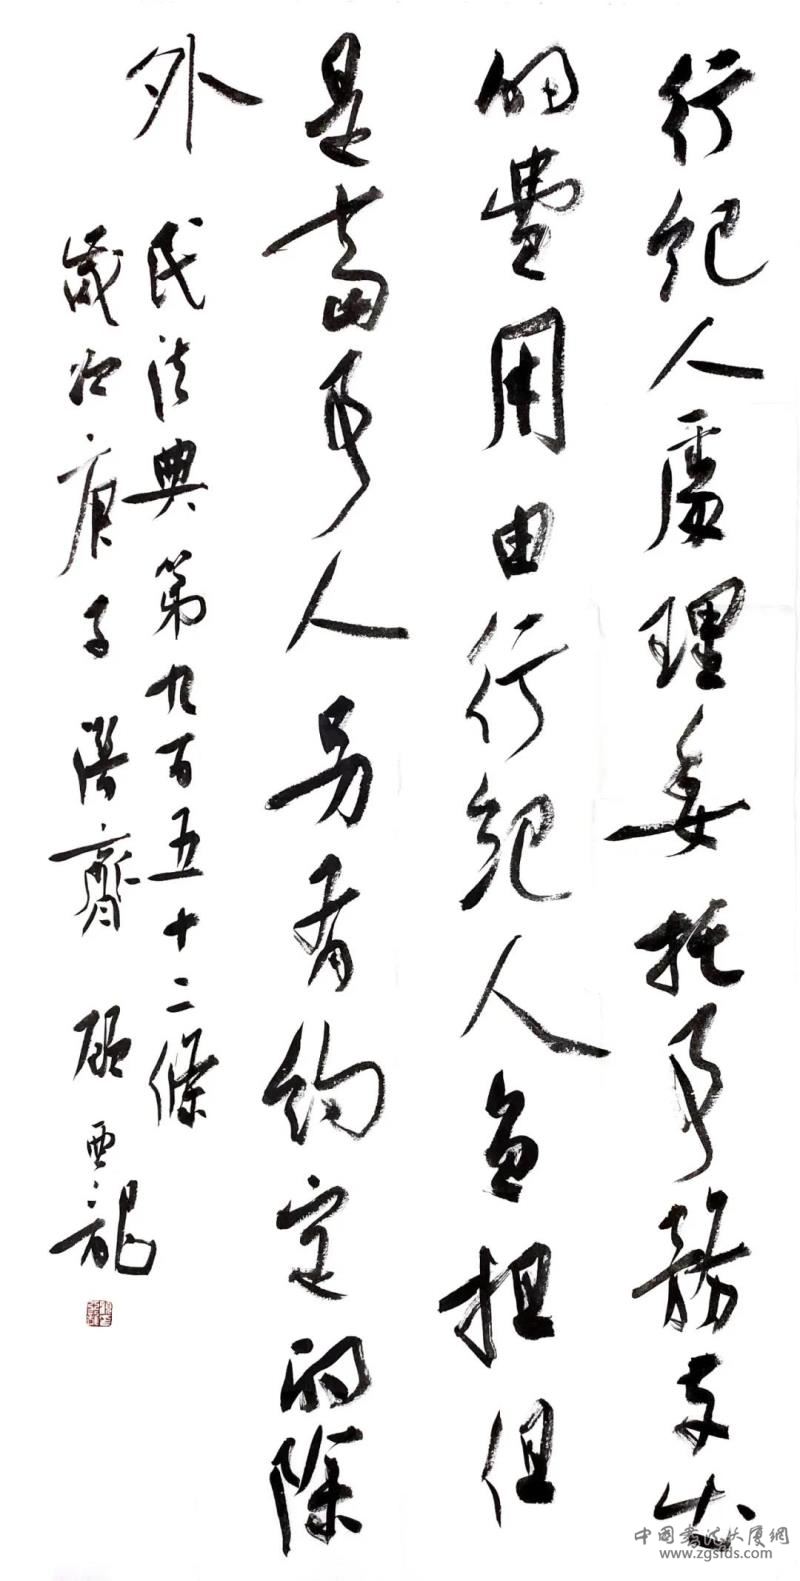 行紀人處理委托事務支出
的費用由行紀人負担但
是當事人另有約定的除
外
民法典第九百五十二條
歲次庚子潛齋 顾亜龍
中國書法大厦網
www.zgsfds.com